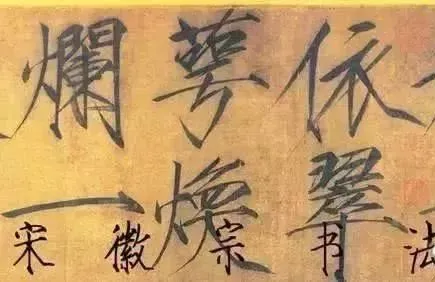 依翠
萼煥
爛一
宋徽宗书法